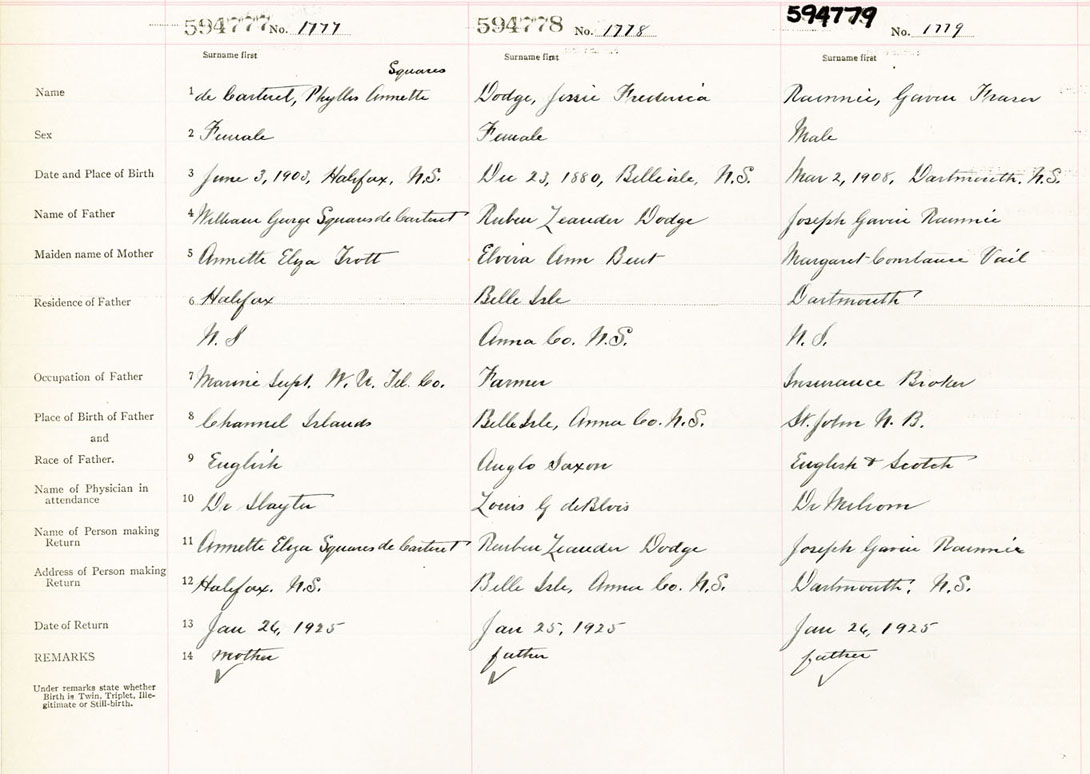 594777 No. 1777 594778 No. 1778 594779 No. 1779
Surname first Surname first Surname first
Squares
Name 1 de Carteret, Phyllis Annette Dodge, Jessie Frederica Rainnie, Gavin Fraser
Sex 2 Female Female Male
Date and Place of Birth 3 June 3, 1903, Halifax, N.S. Dec 23, 1880, Belleisle, N.S. Mar 2, 1908, Dartmouth, N.S.
Name of Father 4 William George Squares de Carteret Ruben Leander Dodge Joseph Gavin Rainnie
Maiden name of Mother 5 Annette Elyza Trott Elvira Ann Bent Margaret Constance Vail
Residence of Father 6 Halifax Belle Isle Dartmouth
N.S Anna Co. N.S. N.S.
Occupation of Father 7 Marine Supt. W. U. Tel. Co. Farmer Insurance Broker
Place of Birth of Father 8 Channel Islands Belle Isle, Anna Co. N.S. St. John N.B.
and
Race of Father. 9 English Anglo Saxon English & Scotch
Name of Physician in
attendance 10 Dr Slayter Louis G deBlois Dr
Name of Person making
Return 11 Annette Elyza Squares de Carteret Reuben Leander Dodge Joseph Gavin Rainnie
Address of Person making
Return 12 Halifax. N.S. Belle Isle, Anna Co. N.S. Dartmouth, N.S.
Date of Return 13 Jan 26, 1925 Jan 25, 1925 Jan 26, 1925
REMARKS 14 mother father father
Under remarks state whether
Birth is Twin, Triplet, Ille-
gitimate or Still-birth.